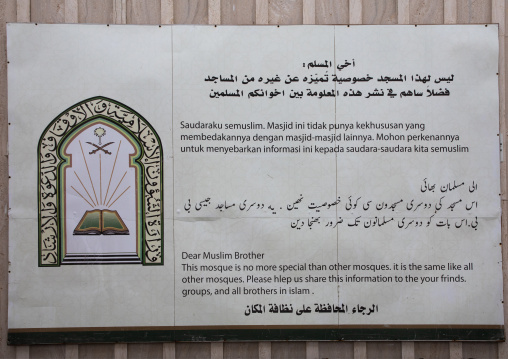 أخي المسلم:
ليس لهذا المسجد خصوصية تُميّزه عن غيره من المساجد
فضلاً ساهم في نشر هذه المعلومة بين اخوانكم المسلمين
Saudaraku semuslim. Masjid ini tidak punya kekhususan yang
membedakannya dengan masjid-masjid lainnya. Mohon perkenannya
untuk menyebarkan informasi ini kepada saudara-saudara kita semuslim
الى مسلمان بھائی
اس مسجد کی دوسری مسجدون سی کوئی خصوصیت نھین . یه دوسری مساجد جیسی ہی
ہی.اس بات کو دوسری مسلمانون تك ضرور بھنجا دین
Dear Muslim Brother
This mosque is no more special than other mosques. it is the same like all
other mosques. Please hlep us share this information to the your frinds.
groups, and all brothers in islam .
الرجاء المحافظة على نظافة المكان